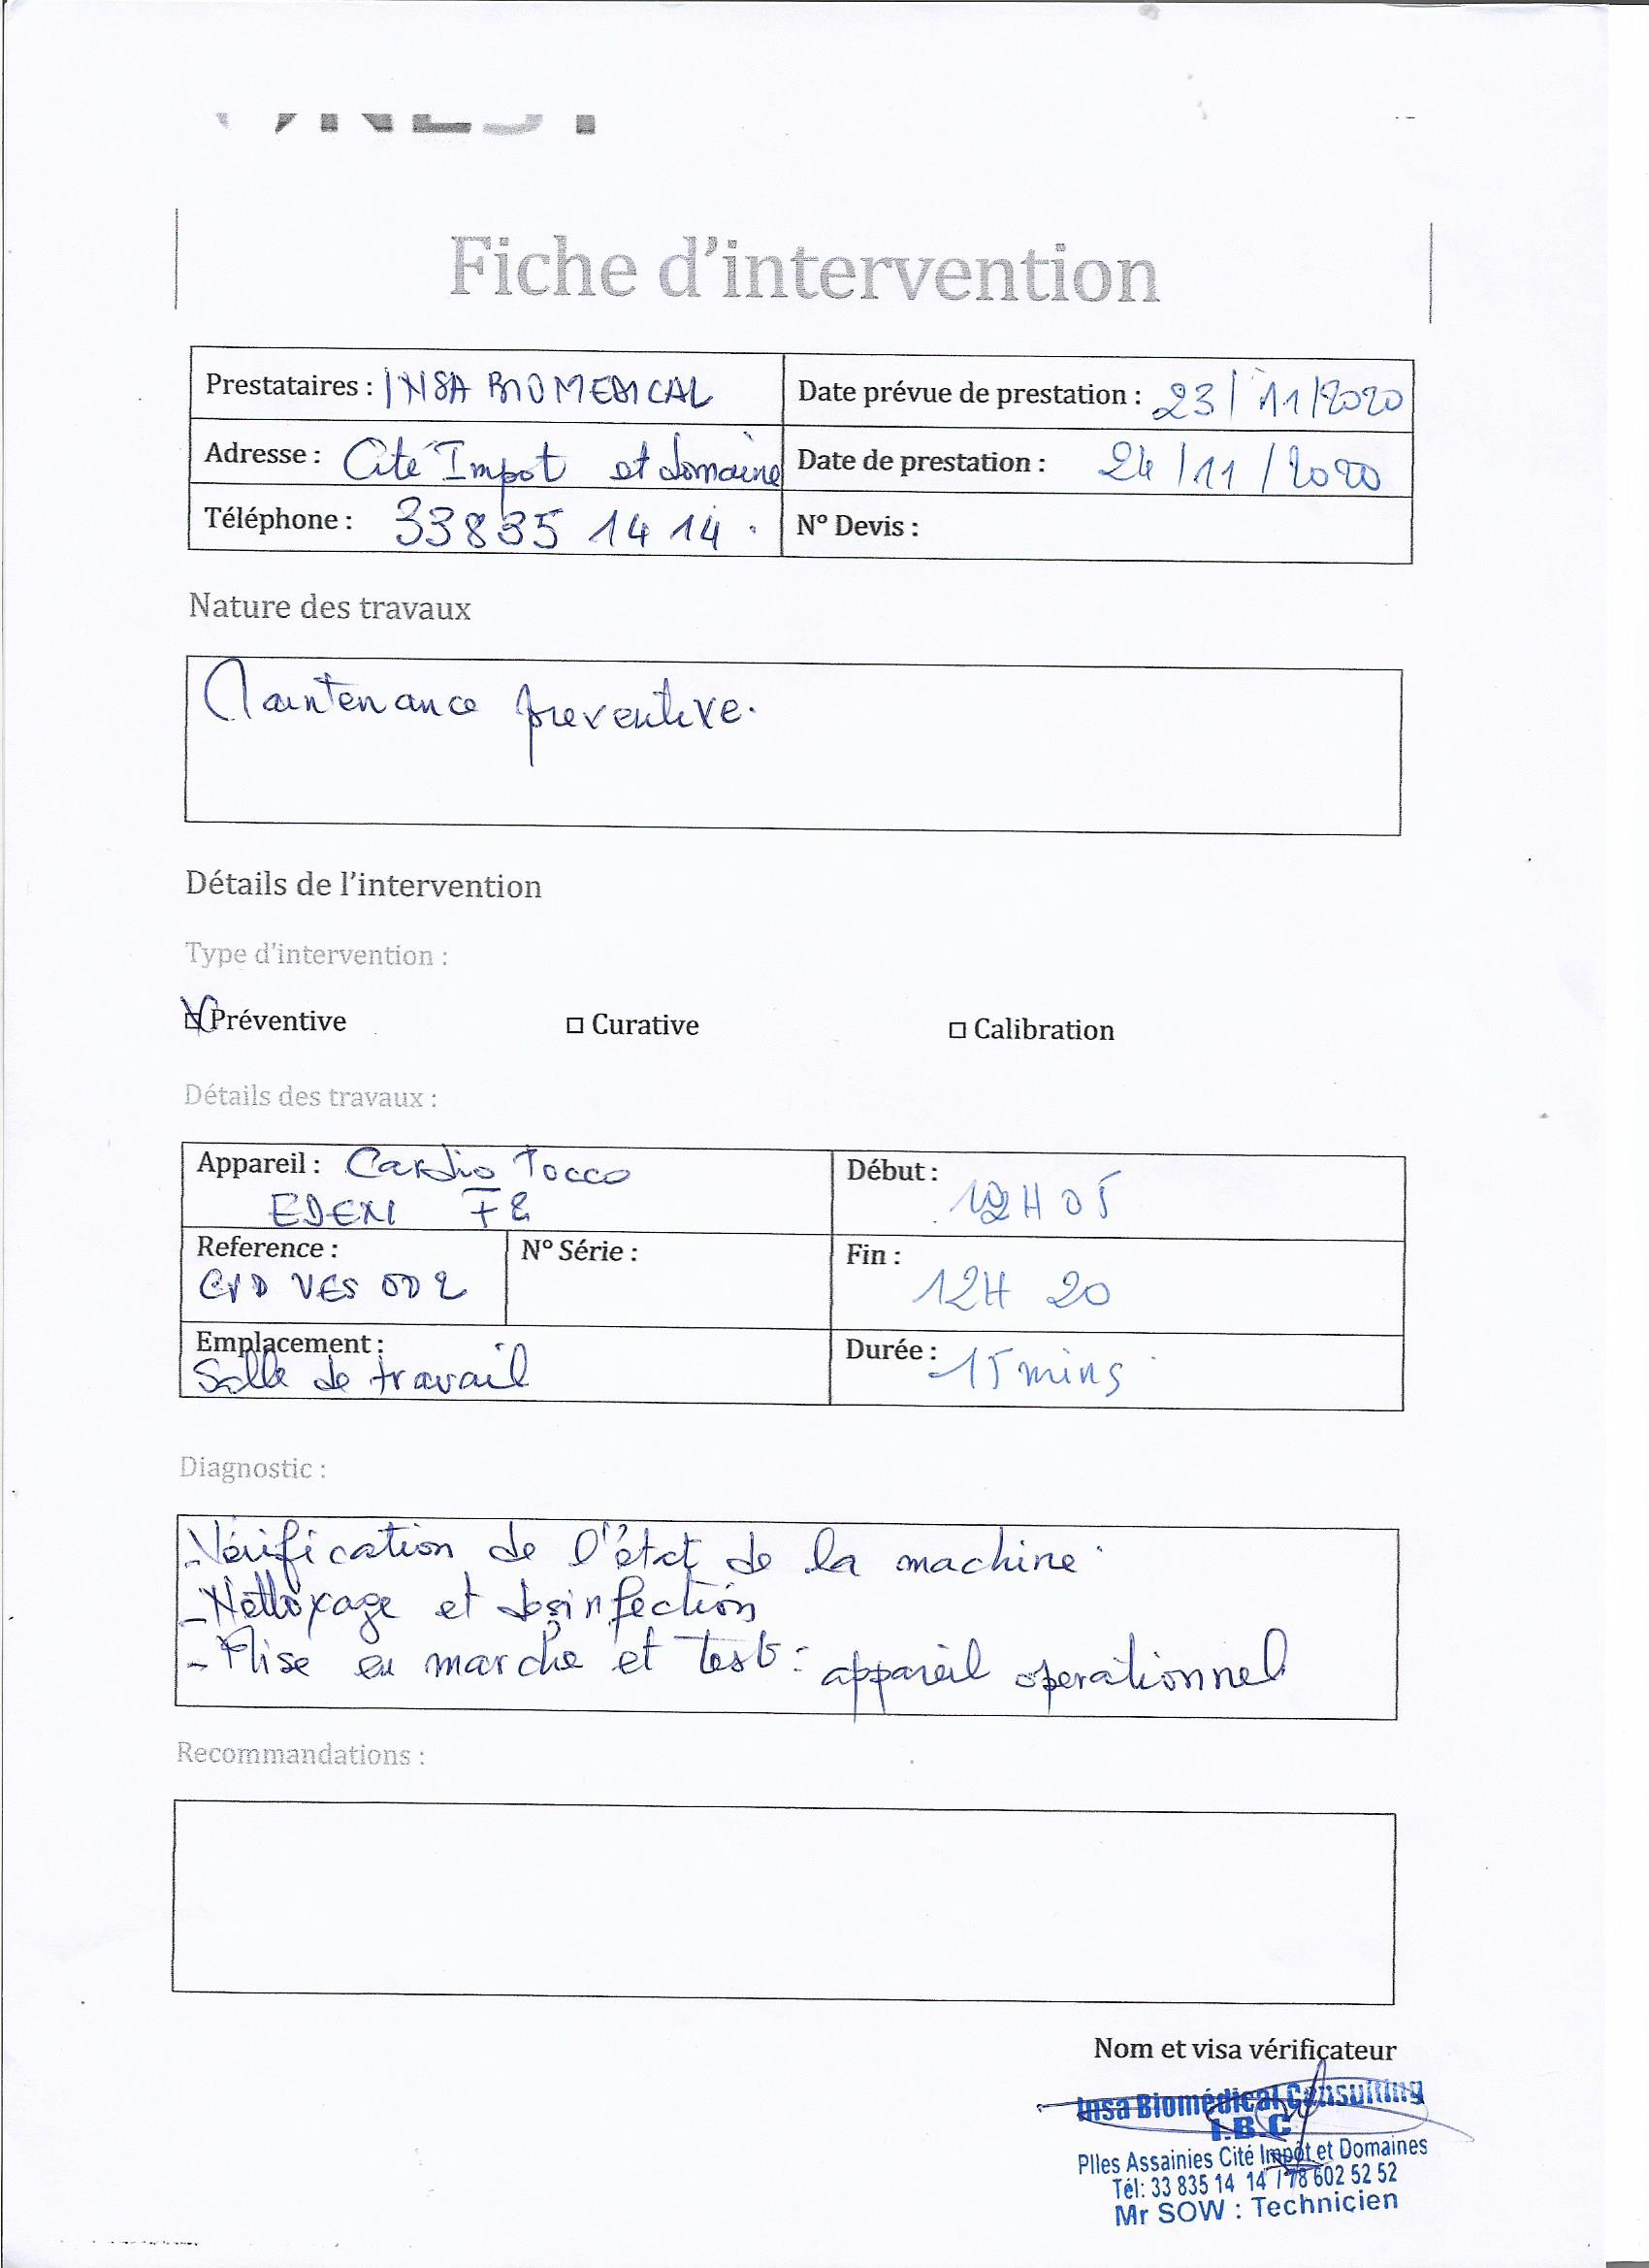 Fiche d'intervention
Prestataires : INSA BIOMEDICAL
Date prévue de prestation : 23/11/2020
Adresse : Cité Impot et domaine
Date de prestation : 24/11/2020
Téléphone : 33835 14 14.
N° Devis :
Nature des travaux
Maintenance preventive.
Détails de l'intervention
Type d'intervention :
Préventive
Curative
Calibration
Détails des travaux :
Appareil : Cardio Tocco
Début : 12H05
EDEN F
Reference :
N° Série :
Fin :
VES
12H 20
Emplacement :
Durée : 15 mins
Salle de travail
Diagnostic :
- Vérification de l'état de la machine.
- Nettoyage et desinfection
- Mise en marche et test : appareil operationnel
Recommandations :
Nom et visa vérificateur
Insa Biomédical Consulting
I.B.C
Plles Assainies Cité Impôt et Domaines
Tél: 33 835 14 14 / 78 602 52 52
Mr SOW : Technicien